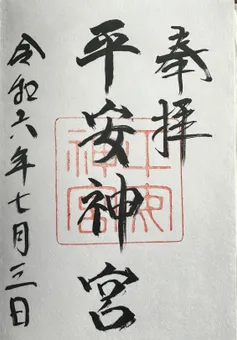 奉拝
平安神宮
令和六年七月三日
平安神宮